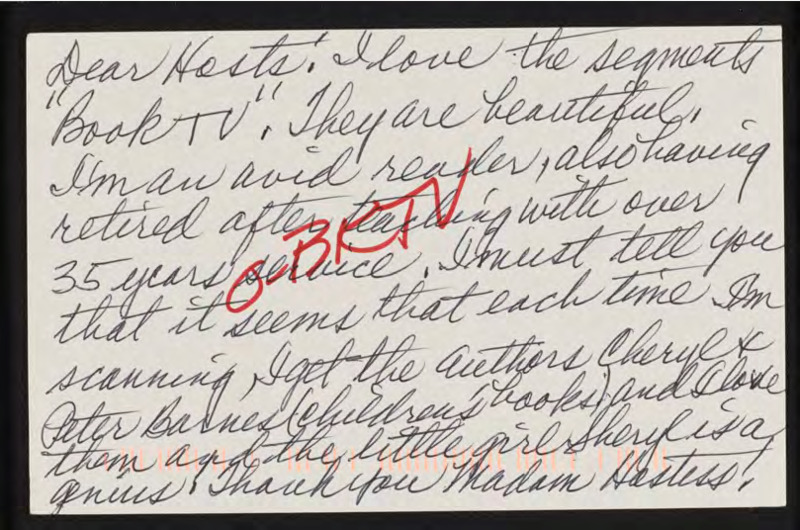 Dear Hosts: I love the segments
"Book TV". They are beautiful.
I'm an avid reader, also having
retired after teaching with over
35 years service. I must tell you
that it seems that each time I'm
scanning, I get the authors Cheryl &
Peter Barnes (children's books) and I love
them and the little girl Sheryl is a
genius! Thank you Madam Hostess.
O-BKTV